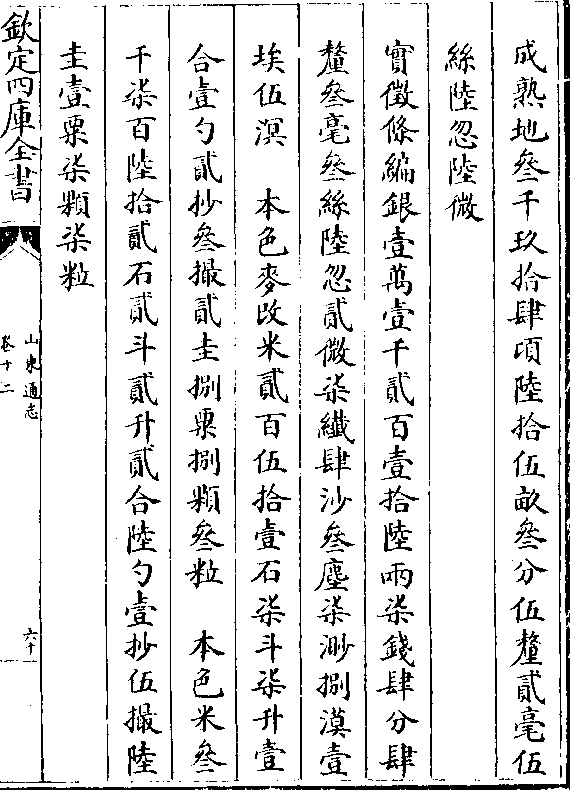 成熟地叄千玖拾肆頃陸拾伍畝叄分伍釐貳毫伍
絲陸忽陸微
實徵條編銀壹萬壹千貳百壹拾陸兩柒錢肆分肆
釐叄毫叄絲陸忽貳微柒纖肆沙叄塵柒渺捌漠壹
埃伍溟　本色麥改米貳百伍拾壹石柒斗柒升壹
合壹勺貳抄叄撮貳圭捌粟捌顆叄粒　本色米叄
千柒百陸拾貳石貳斗貳升貳合陸勺壹抄伍撮陸
圭壹粟柒顆柒粒
欽定四庫全書
山東通志
卷十二
六十